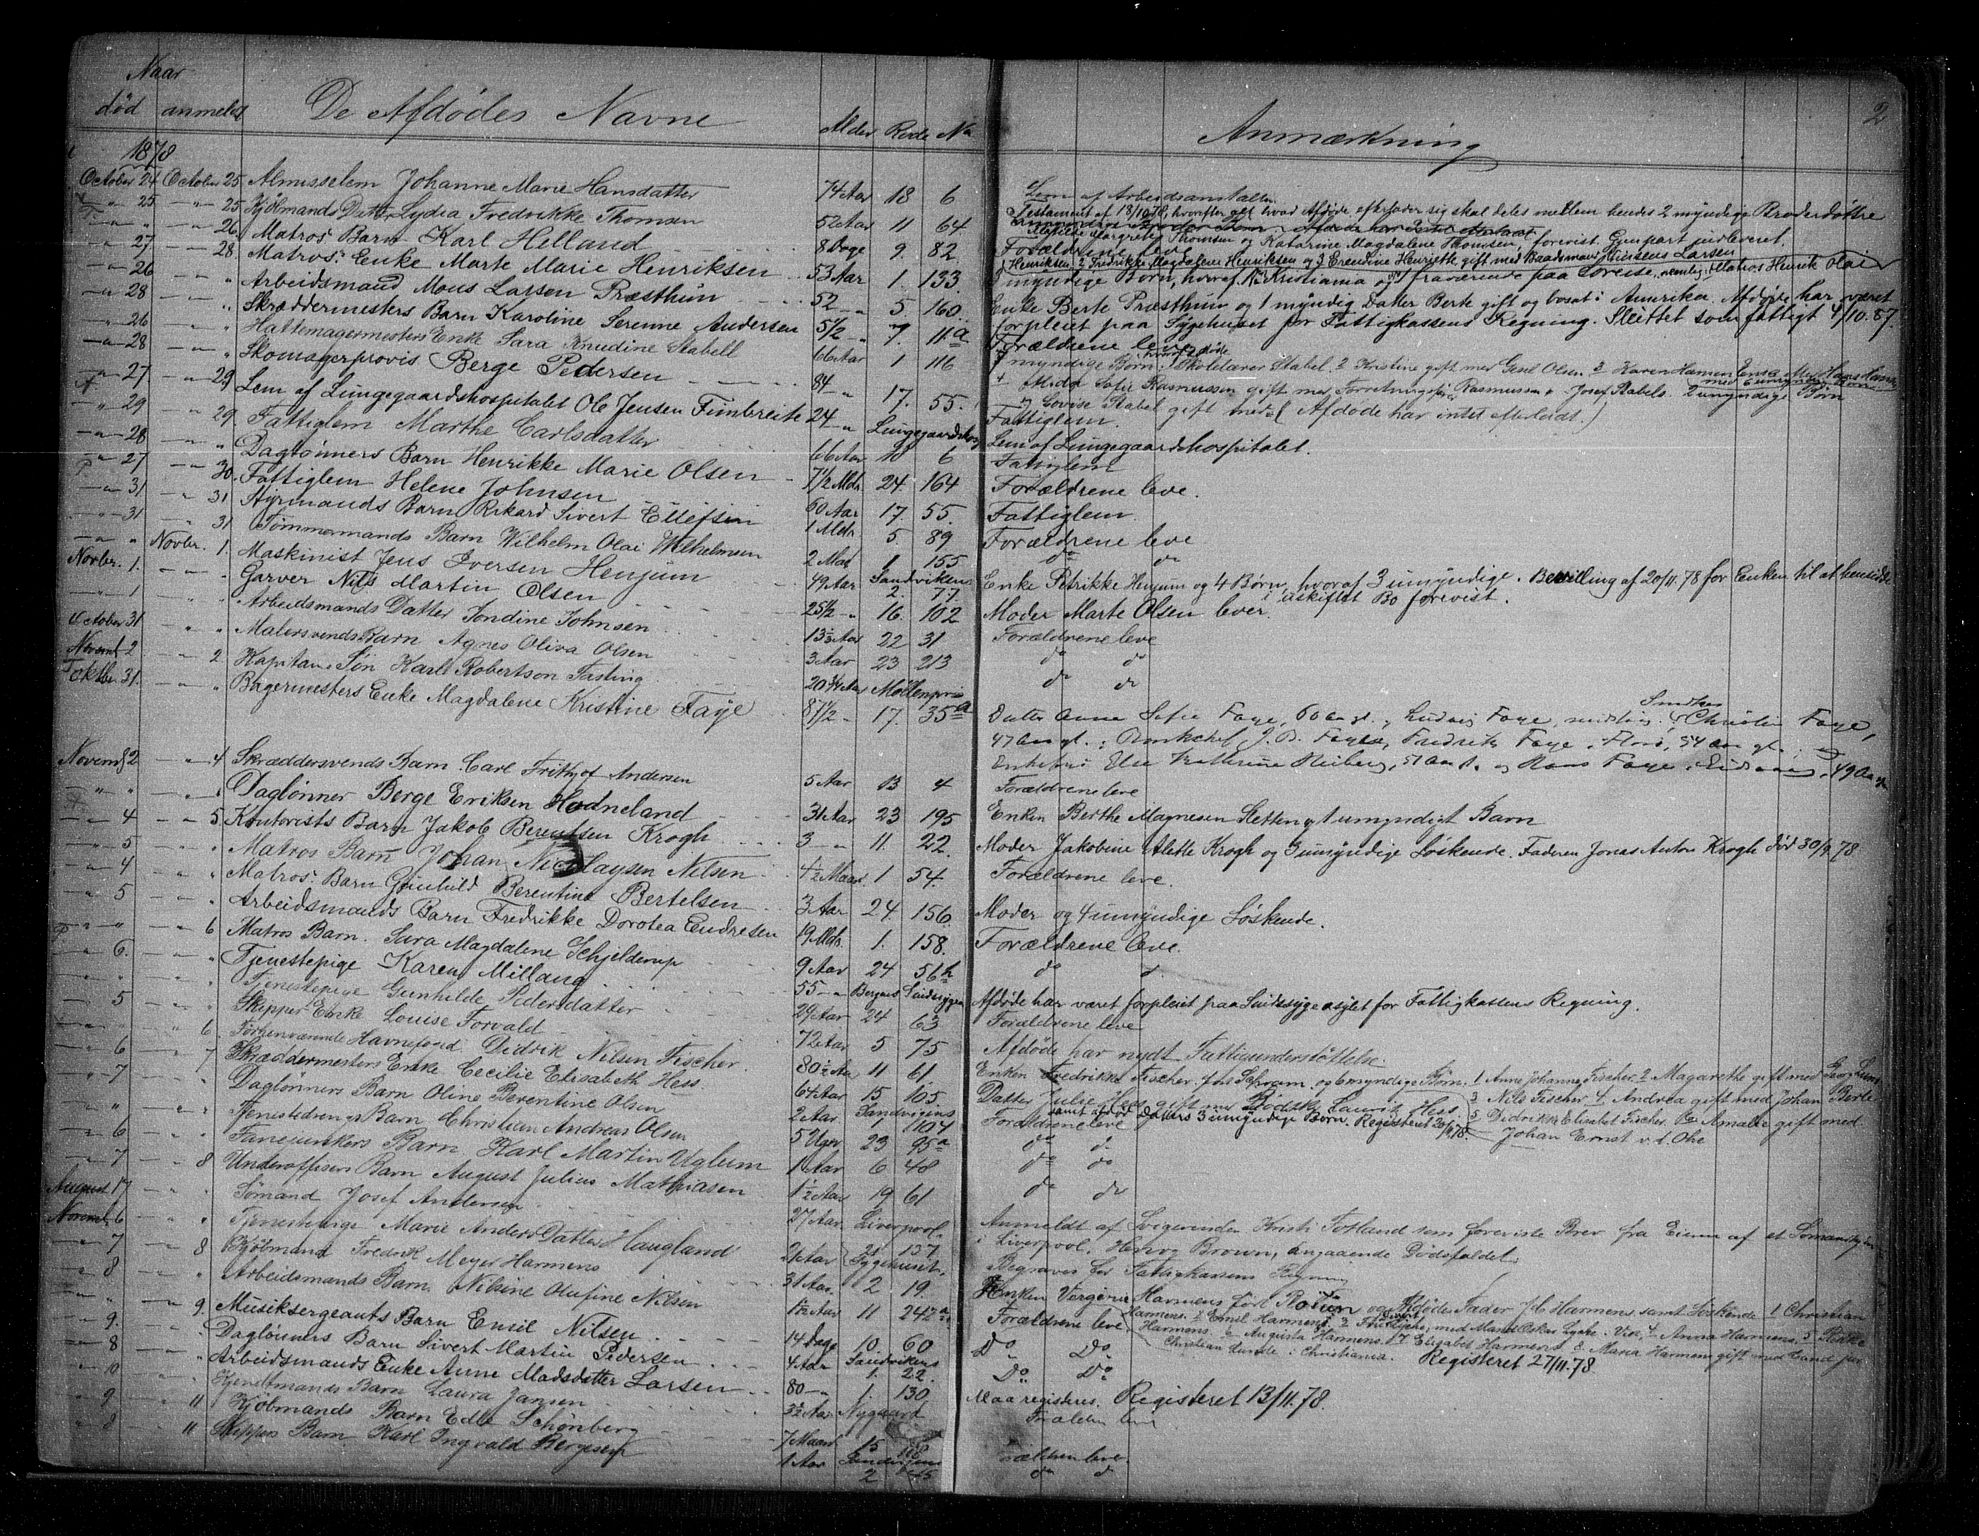 Naar
død anmeldt De Afdødes Navne Alder Rode No Anmærkning 2
1878
October 24 October 25 Almisselem Johanne Marie Hansdatter 74 Aar 18 6 Lem af Arbeidsanstalten
" 25 " 25 Kjøbmands Datter Lydia Fredrikke Thomsen 52 Aar 11 64 Testament af 18/10 78, hvorefter alt hvad Afdøde efterlader sig skal deles mellem hendes 2 myndige Broderdøttre
Margrethe Thomsen og Katarine Magdalene Thomsen, forevist. Gjenpart indleveret.
" " 26 Matros' Barn Karl Helland 8 Dage 9. 82. Forældrene leve
" 27 " 28. Matros' Enke Marte Marie Henriksen 53 Aar 1. 133. myndige Børn, hvoraf i Kristiania og 1 fraværende paa Søreise, nemlig: Matros Henrik Olai
Henriksen. 2 Fredrikke Magdalene Henriksen og 3 Erendine Henriette gift med Baadsmand Larsen
" 26 " " Arbeidsmand Mons Larsen Præsthun 52 " 5 160. Enke Berte Præsthun og 1 myndig Datter Berte gift og bosat i Amerika. Afdøde har været
forpleiet paa Sygehuset for Fattigkassens Regning. Slettet som fattigt 4/10.87.
" 28 " " Skræddermesters Barn Karoline Serenne Andersen 5 1/2 " 7. 11a Forældrene leve
" 26 " " Hattemagermesters Enke Sara Knudine Stabell 66 Aar 1 116 myndige Børn: Stabel. 2 Kristine gift med Olsen 3 Karen Hansen Enke
Sofie Rasmussen gift med Rasmussen Josef Stabels 2 umyndige Børn
Lovise Stabel gift med (Afdøde har intet efterladt.)
" 28 " " Skomagerprovis Berge Pedersen 84 " 17. 55. Fattiglem.
" 27 " 29 Lem af Lungegaardshospitalet Ole Jensen Fimbreite 24 " Lungegaardshosp Lem af Lungegaardshospitalet.
" 29 " 29. Fattiglem Marthe Carlsdatter 66 Aar 10 6 Fattiglem
" 28 " " Daglønners Barn Henrikke Marie Olsen 7 1/2 Mdr 24. 164 Forældrene leve.
" 27 " 30. Fattiglem Helene Johnsen 60 Aar 17 55. Fattiglem
" 31 " 31 Styrmands Barn Rikard Sivert Ellefsen 1 Mdr. 5 89 Forældrene leve
" 31 " 31 Tømmermands Barn Wilhelm Olai Wilhelmsen 2 Mdr 1 155 do do
" " Novbr. 1. Maskinist Jens Iversen Henjum 49 Aar Sandviken 2. 77 Enke Petrikke Henjum og 4 Børn, hvoraf 3 umyndige. Bevilling af 20/11.78 for Enken til at hensidde
i uskiftet Bo forevist.
Novbr. 1. " " Garver Nils Martin Olsen 25 1/2 " 16. 102 Moder Marte Olsen lever.
" 1 " " Arbeidsmands Datter Jondine Johnsen 13 1/2 Aar 22 31 Forældrene leve
October 31 " " Malersvends Barn Agnes Oliva Olsen 3 Aar 23 213 do do
Novemb 2 " 2 Kapitains Søn Karl Robertson Fasting 20 3/4 Aar Møllenpris do do
Oktbr. 31. " " Bagermesters Enke Magdalene Kristine Faye 87 1/2 " 17. 35a Datter Anna Sofie Faye, 60 Aar gl., Ludvig Faye, Christen Faye,
47 Aar gl., Bankchef J. B. Faye, Fredrik Faye, Florø, 54 Aar gl.,
Enkefru Else Kathrine Heiberg, 51 Aar gl. og Hans Faye, 49 Aar gl.
Novemb 2 " 4 Skræddersvends Barn Carl Frithjof Andersen 5 Aar 13 4 Forældrene leve
" " " Daglønner Berge Eriksen Hodneland 31 Aar 23 195 Enken Berthe Magnesen Sletten og 1 umyndigt Barn
" 4 " 5 Kontorists Barn Jakob Berentsen Krogh 3 " 11. 22. Moder Jakobine Alette Krogh og 3 umyndige Søskende. Faderen Jonas Anton Krogh død 30/9.78.
" 5 " Matros Barn Johan Nicolaysen Nilsen 4 1/2 Maan. 1 54. Forældrene leve.
" 4 " Matros' Barn Gunhild Berentine Bertelsen 3 Aar 24. 156. Moder og 4 umyndige Søskende.
" 5 " Arbeidsmands Barn Fredrikke Dorotea Endresen 19 Mdr. 1. 158. Forældrene leve.
" " " 6 Matros Barn. Sara Magdalene Schjelderup 9 Aar 24 56b do
" 6. " Tjenestepige Karen Millang 55 " Bergens Sindssygea Afdøde har været forpleiet paa Sindssygeasylet for Fattigkassens Regning.
" " Tjenestepige Gunhilde Pedersdatter 29 Aar 24 63 Forældrene leve
" 5 " Skipper Enke Louise Forvald 72 Aar 5 75 Afdøde har nydt Fattigunderstøttelse.
" " 6 Forhenværende Havnefoged Didrik Nilsen Fischer 80 1/2 Aar 11 61 Enken Fredrikke Fischer og 6 myndige Børn. 1 Anne Johanne Fischer. 2 Magarethe gift med
3 Nils Fischer 4. Andrea gift med Johan Berle
5 Didrikke Elisabet Fischer. 6 Amalie gift med
Johan Ernst v. d. Ohe
" 6 " 7 Skræddermesters Enke Cecilie Elisabeth Hess 64 Aar 15 105 Datter Julie Hess gift med Bødtker Lauritz Hess
samt afdød Datters 3 umyndige Børn. Registeret 20/11.78.
" 7 " Daglønners Barn Oline Berentine Olsen 2 Aar Sandvigens 1 104 Forældrene leve
" " " Tjenestedrengs Barn Christian Andreas Olsen 5 Uger 23 95a do
" 6 " Fanejunkers Barn Karl Martin Uglum 1 Aar 6 48 do do
" 7 " 8 Underofficers Barn August Julius Mathiasen 1 1/2 Aar 19 61 do do
August 17 " " Sømand Josef Andersen 27 Aar Liverpool. Anmeldt af Svigerinden Kristi Totland som foreviste Brev fra Eieren af et Sømandshjem
i Liverpool, Henry Brown, angaaende Dødsfaldet.
Novemb. 6 " " Tjenestepige Marie Anders Datter Haugland 21 Aar Sygehuset. Begraves for Fattigkassens Regning
" 7 " 8 Kjøbmand Fredrik Meyer Harmens 31 Aar 2 19. Enken Harmens og Afdødes Fader Harmens samt Søskende 1 Christian
Harmens. 2 Emil Harmens 3 4 Anna Harmens. 5
Harmens. 6 Augusta Harmens. 7 Elisabet Harmens 8 Maria Harmens gift med
i Christiania. Registeret 27/11.78
" 8 " " Arbeidsmands Barn Nilsine Olufine Nilsen 1 1/2 Aar 11 242a Forældrene leve
" 9. " 9. Musiksergeants Barn Emil Nilsen 14 Dage 10. 60 Do Do
" 8 " Dagløners Barn Sivert Martin Pedersen 4 Aar Sandvikens 1. 22. Do Do
" 10 " Arbeidsmands Enke Anne Madsdatter Larsen 80 " 1. 130 Maa registeres. Registeret 13/11.78.
" " Barn Laura Jansen 3 1/2 Aar Nygaard Forældrene leve
" 9 " 11 Kjøbmands Barn Edle Schønberg 7 Maan 15 Forældren leve.
" 8 " 11 Skippers Barn Karl Ingvald Bergesen 1 Aar Sandvigens 2 45 do do